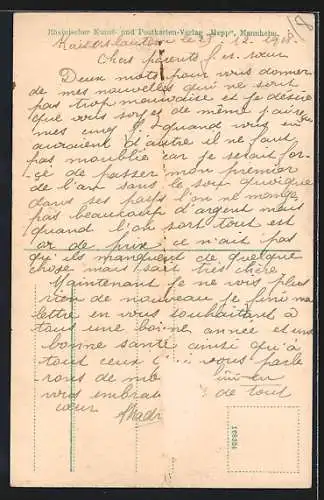 Rheinischer Kunst- und Postkarten-Verlag „Hepp", Mannheim.
Kaiserslautern le 29. 12. 1918.
Chers parents f. et sœur
Deux mots pour vous donner
de mes nouvelles qui ne sont
pas trop mauvaise et je désire
que vous soyez de même j'ai
mes quand vous en
auraient d'autre il ne faut
pas m'oublié car je serait for-
cé de passer mon premier
de l'an sans le sou quoique
dans ses pays l'on ne mange
pas beaucoup d'argent mais
quand l'on sort tout est
or de prix ce n'ait pas
qu'ils manquent de quelque
chose mais sait très chère
Maintenant je ne vois plus
rien de nouveau je fini ma
lettre en vous souhaitant à
tous une bonne année et une
bonne santé ainsi qu'à
tous ceux vous parle
rons de
vous embrat de tout
cœur
168304